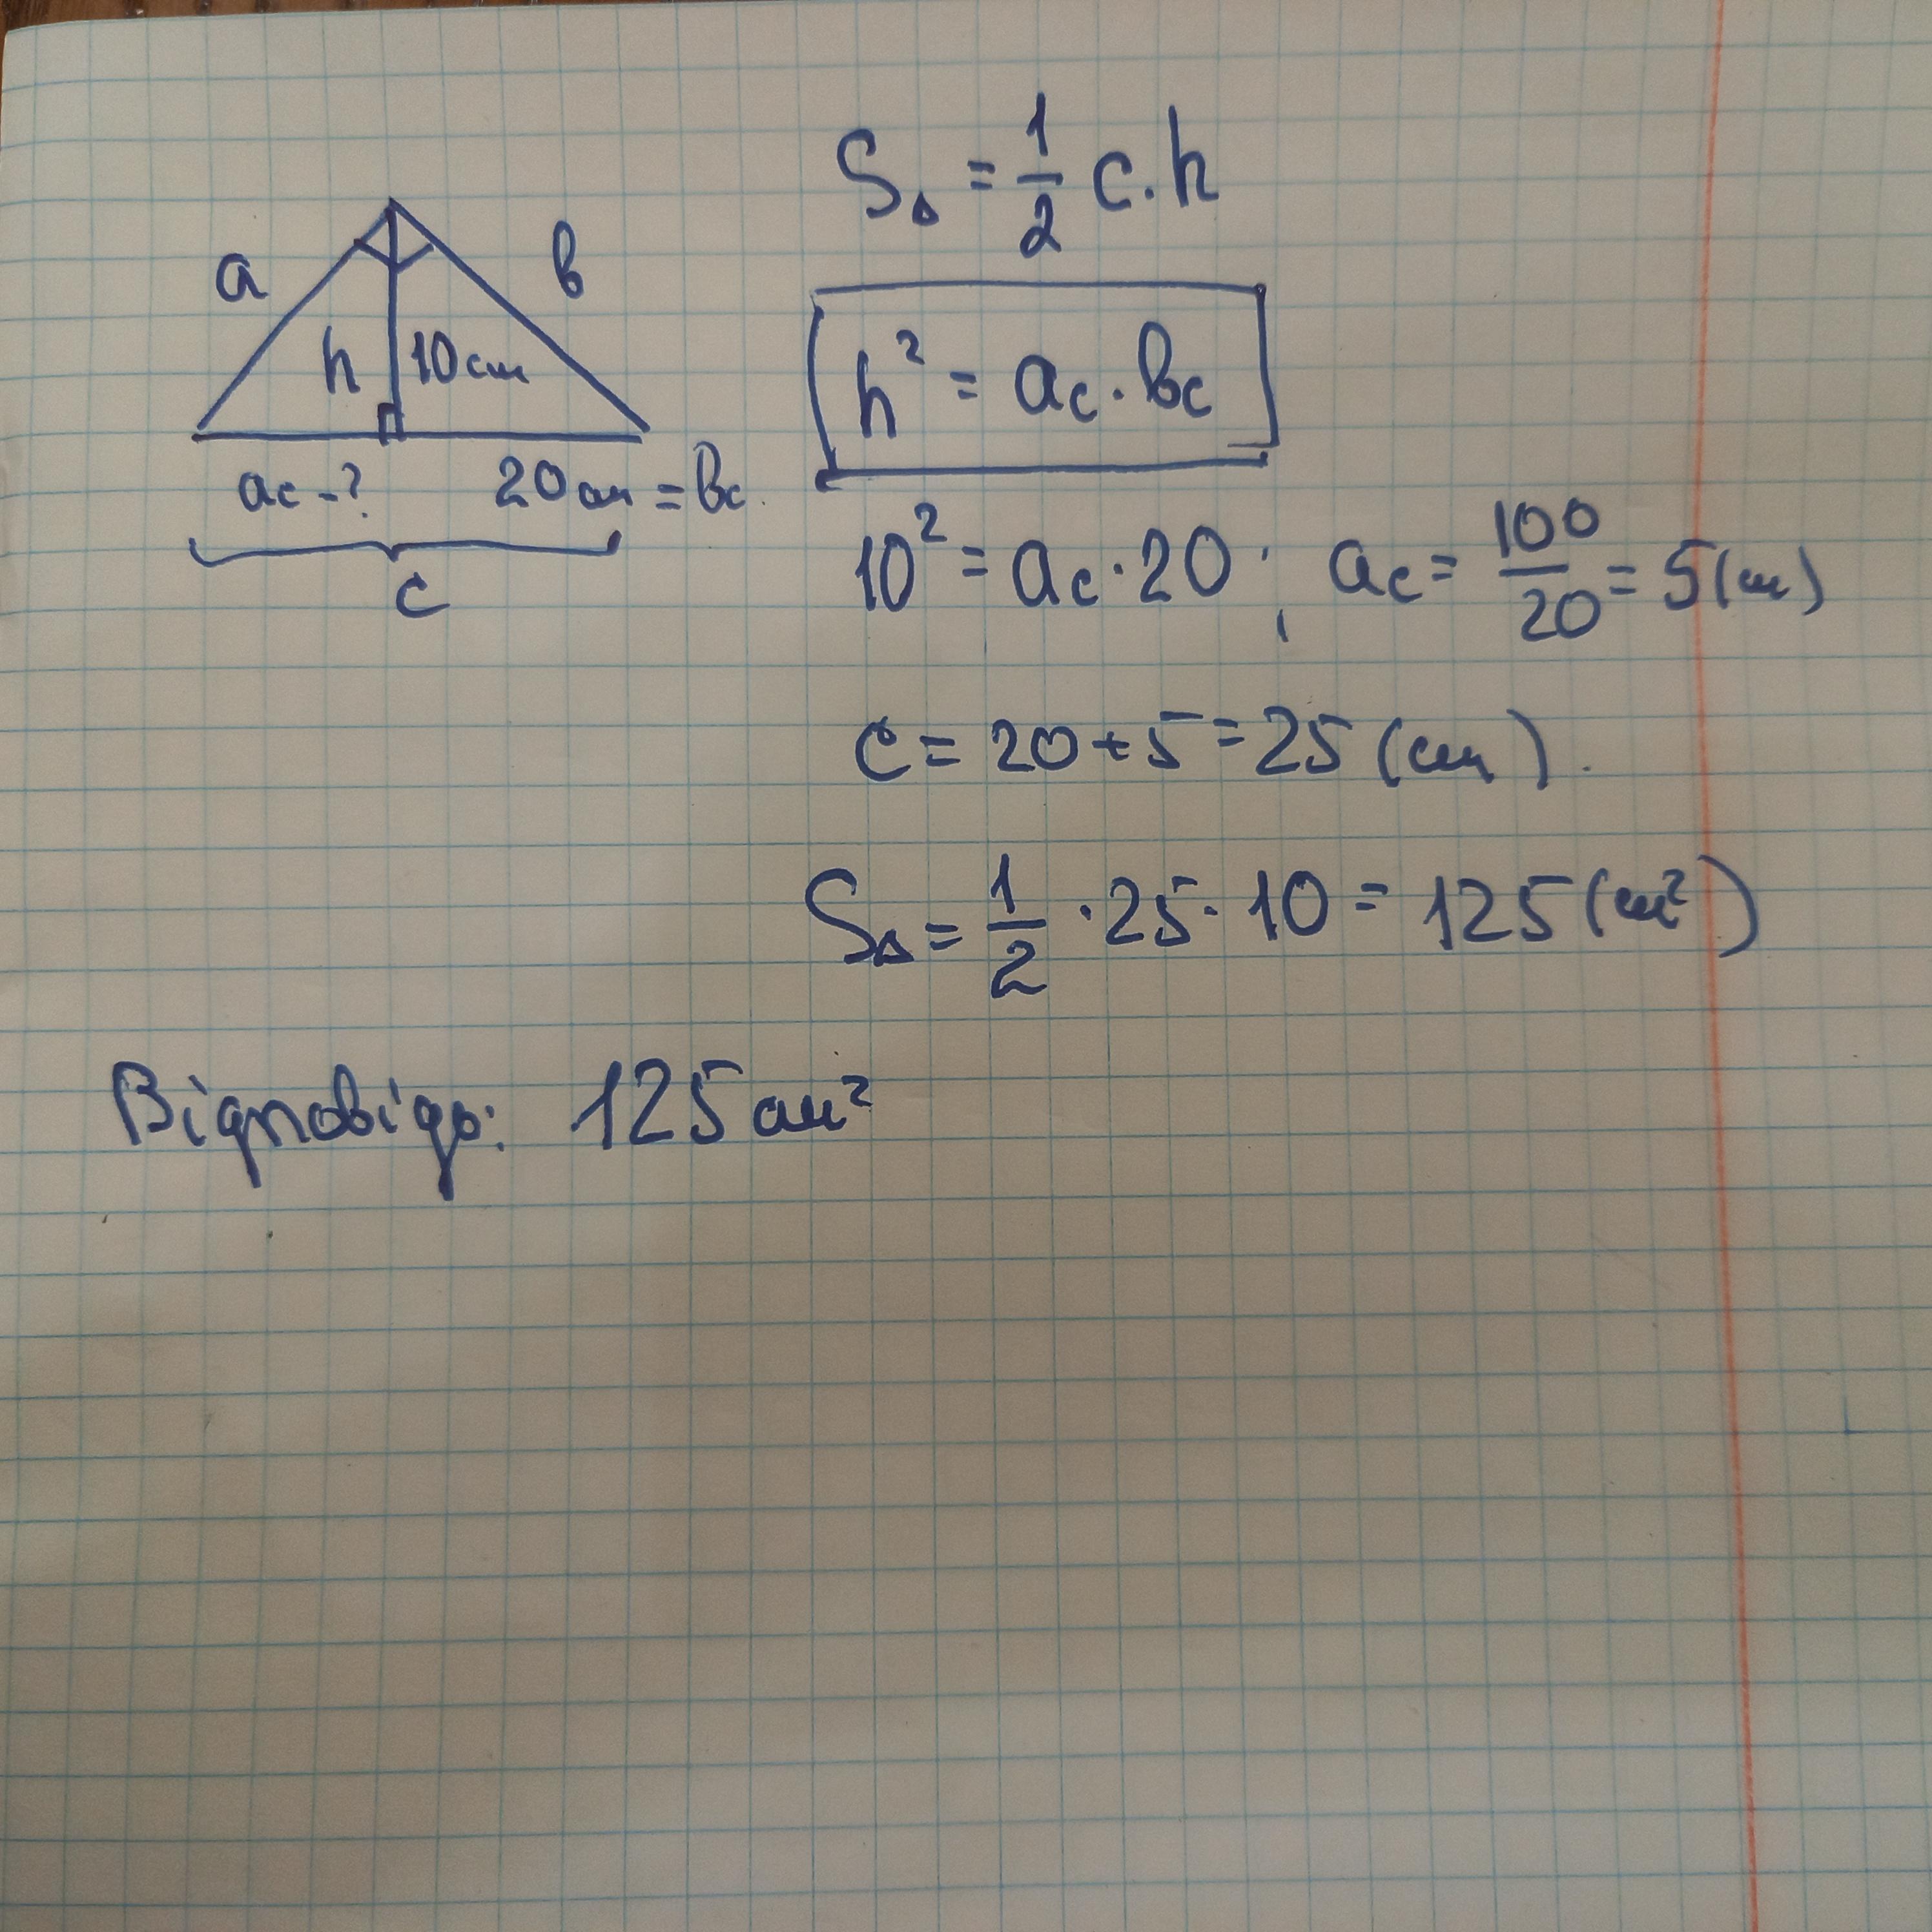 a
в
h 10см
ac - ? 20см = вc
c
S△ = 1/2 c · h
h² = ac · вc
10² = ac · 20 ; ac = 100/20 = 5 (см)
c = 20 + 5 = 25 (см).
S△ = 1/2 · 25 · 10 = 125 (см²)
Відповідь: 125 см²